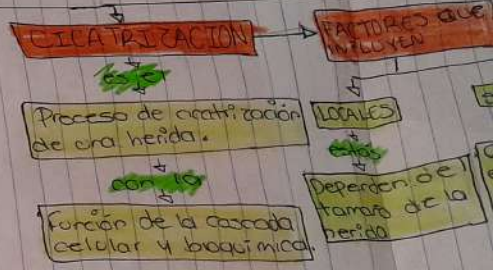 CICATRIZACION
es el
Proceso de cicatrización
de una herida.
con la
función de la cascada
celular y bioquímica.
FACTORES QUE
INFLUYEN
LOCALES
estos
Dependen de
tamaño de la
herida